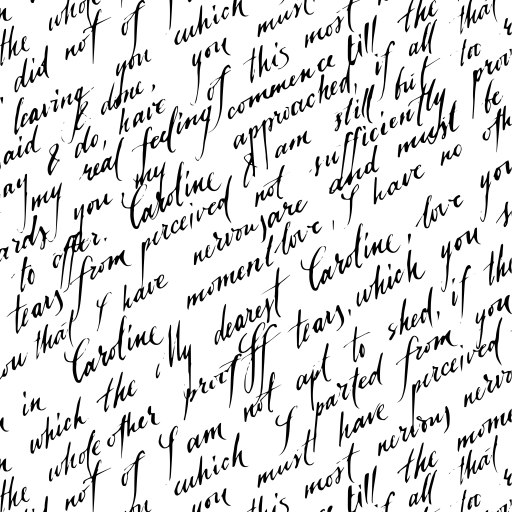 the whole
did not of
leaving you which
aid & done, you must
ay & do, have of this most
my real feeling commence till the
ards you my approached, if all the that
to offer. Caroline & I am still but too
tears from perceived not sufficiently prov
ou that I have nervous are and must be
Caroline moment love, I have no oth
in which the My dearest Caroline, love you
whole other proof tears, which you s
the I am not apt to shed, if the
did not of I parted from you
you which must have perceived
you this most nervous nervo
till the mome
if all that